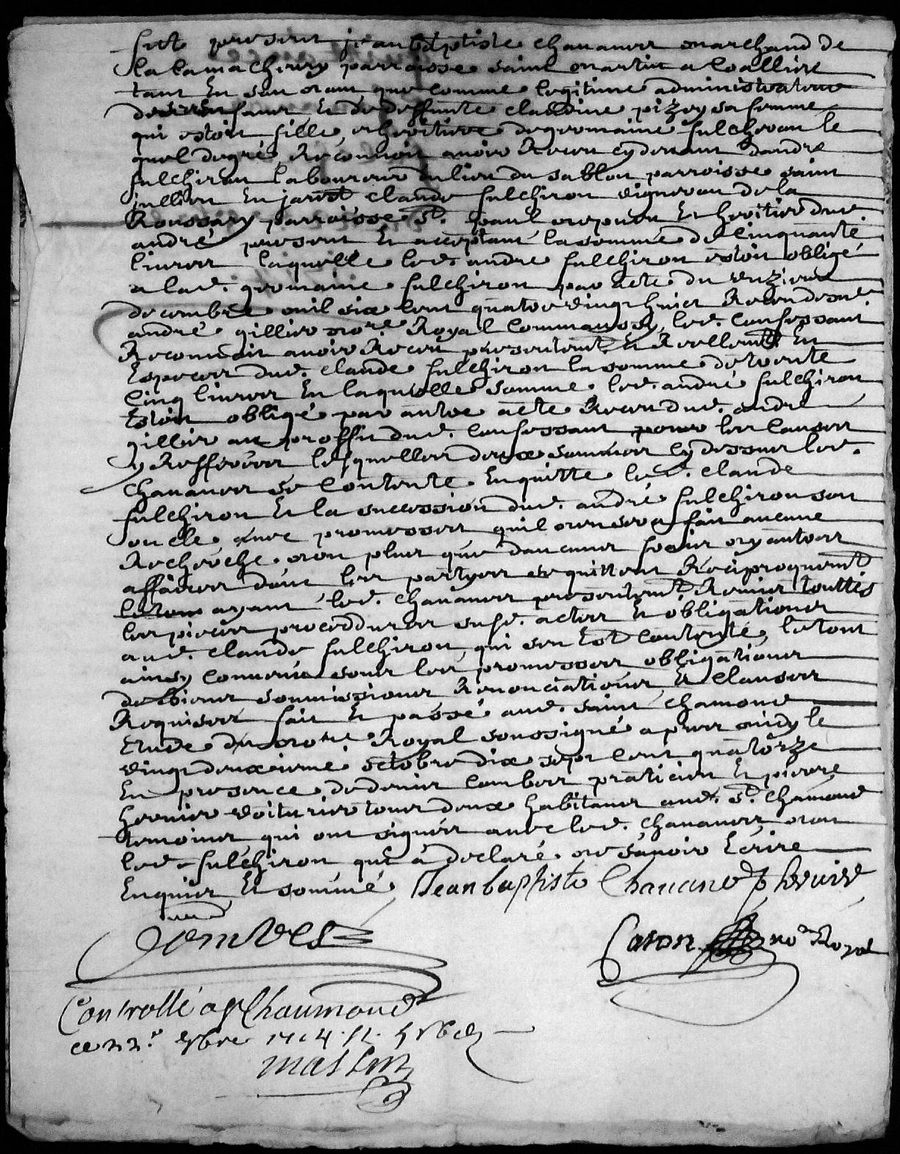 fut present jean baptiste chavaner marchand de
la lamachivry parroisse saint martin a Coallieu
tant en son nom que comme legitime administrateur
de ses enfans et de deffunte claudine pizey sa femme
qui estoit fille et heritiere de germaine fulchiron le
quel de gré Reconnoit avoir Receu cy devant dandré
fulchiron laboureur du lieu du sablon parroisse saint
jullien en jarest claude fulchiron vigneron de la
Roussary parroisse st. paul nepveu et heritier dud.
andre present et acceptant la somme de Cinquante
livres laquelle led. andre fulchiron estoit obligé
a lad. germaine fulchiron par acte du unzieme
decembre mil six Cent quatre vingt huict Receu de me.
andré gillier nore. Royal Comme aussy led. Confessant
Reconnoit avoir Receu presentement et Reellement en
Especes dud. claude fulchiron la somme de trente
Cinq livres en laquelle somme led. andre fulchiron
estoit obligé par autre acte Receu dud. andré
gillier au proffit dud. Confessant pour les causes
y Refferées lesquelles deux sommes cy dessus led.
chavaner se Contente en quitte led. claude
fulchiron et la succession dud. andré fulchiron son
oncle avec promesses quil n'en sera fait aucune
Recherche non plus que daucunes autres
affaires dont les partyes se quittent Reciproquemt.
le tout ayant led. chavaner presentemt. Remis touttes
les pieces proceddures susd. actes et obligations
aud. claude fulchiron qui s'en Est Contenté, le tout
ainsy Convenu sous les promesses obligations
de biens soumissions Renonciations et clauses
Requises fait et passé aud. saint chamond
Etude du notre. Royal soussigné apres midy le
vingt deuxieme octobre dix sept Cent quatorze
En presence de denis Combes praticien et pierre
hervier voiturier tous deux habitans aud. st. chamond
temoins qui ont signés avec led. chavaner non
led. fulchiron qui a declaré ne sçavoir Ecrire
Enquis et sommé Jean baptiste Chavane p hervier
Combes
Caron no. Royal
Controllé a St Chaumond
ce 22e. 8bre 1714
masson